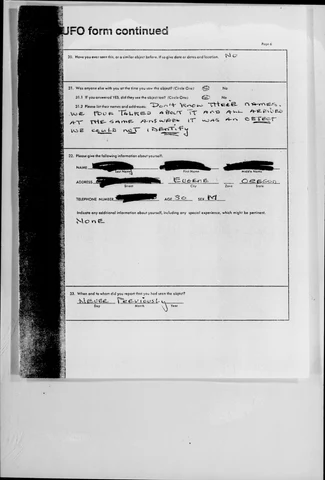 UFO form continued
Page 4
20. Have you ever seen this, or a similar object before. If so give date or dates and location. NO
21. Was anyone else with you at the time you saw the object? (Circle One) Yes No
21.1 If you answered YES, did they see the object too? (Circle One) Yes No
21.2 Please list their names and addresses: DON'T KNOW THERE NAMES,
WE FOUR TALKED ABOUT IT AND ALL ARRIVED
AT THE SAME ANSWER IT WAS AN OBJECT
WE COULD NOT IDENTIFY
22. Please give the following information about yourself:
NAME
Last Name First Name Middle Name
ADDRESS EUGENE OREGON
Street City Zone State
TELEPHONE NUMBER AGE 30 SEX M
Indicate any additional information about yourself, including any special experience, which might be pertinent.
NONE
23. When and to whom did you report that you had seen the object?
NEVER PREVIOUSLY
Day Month Year